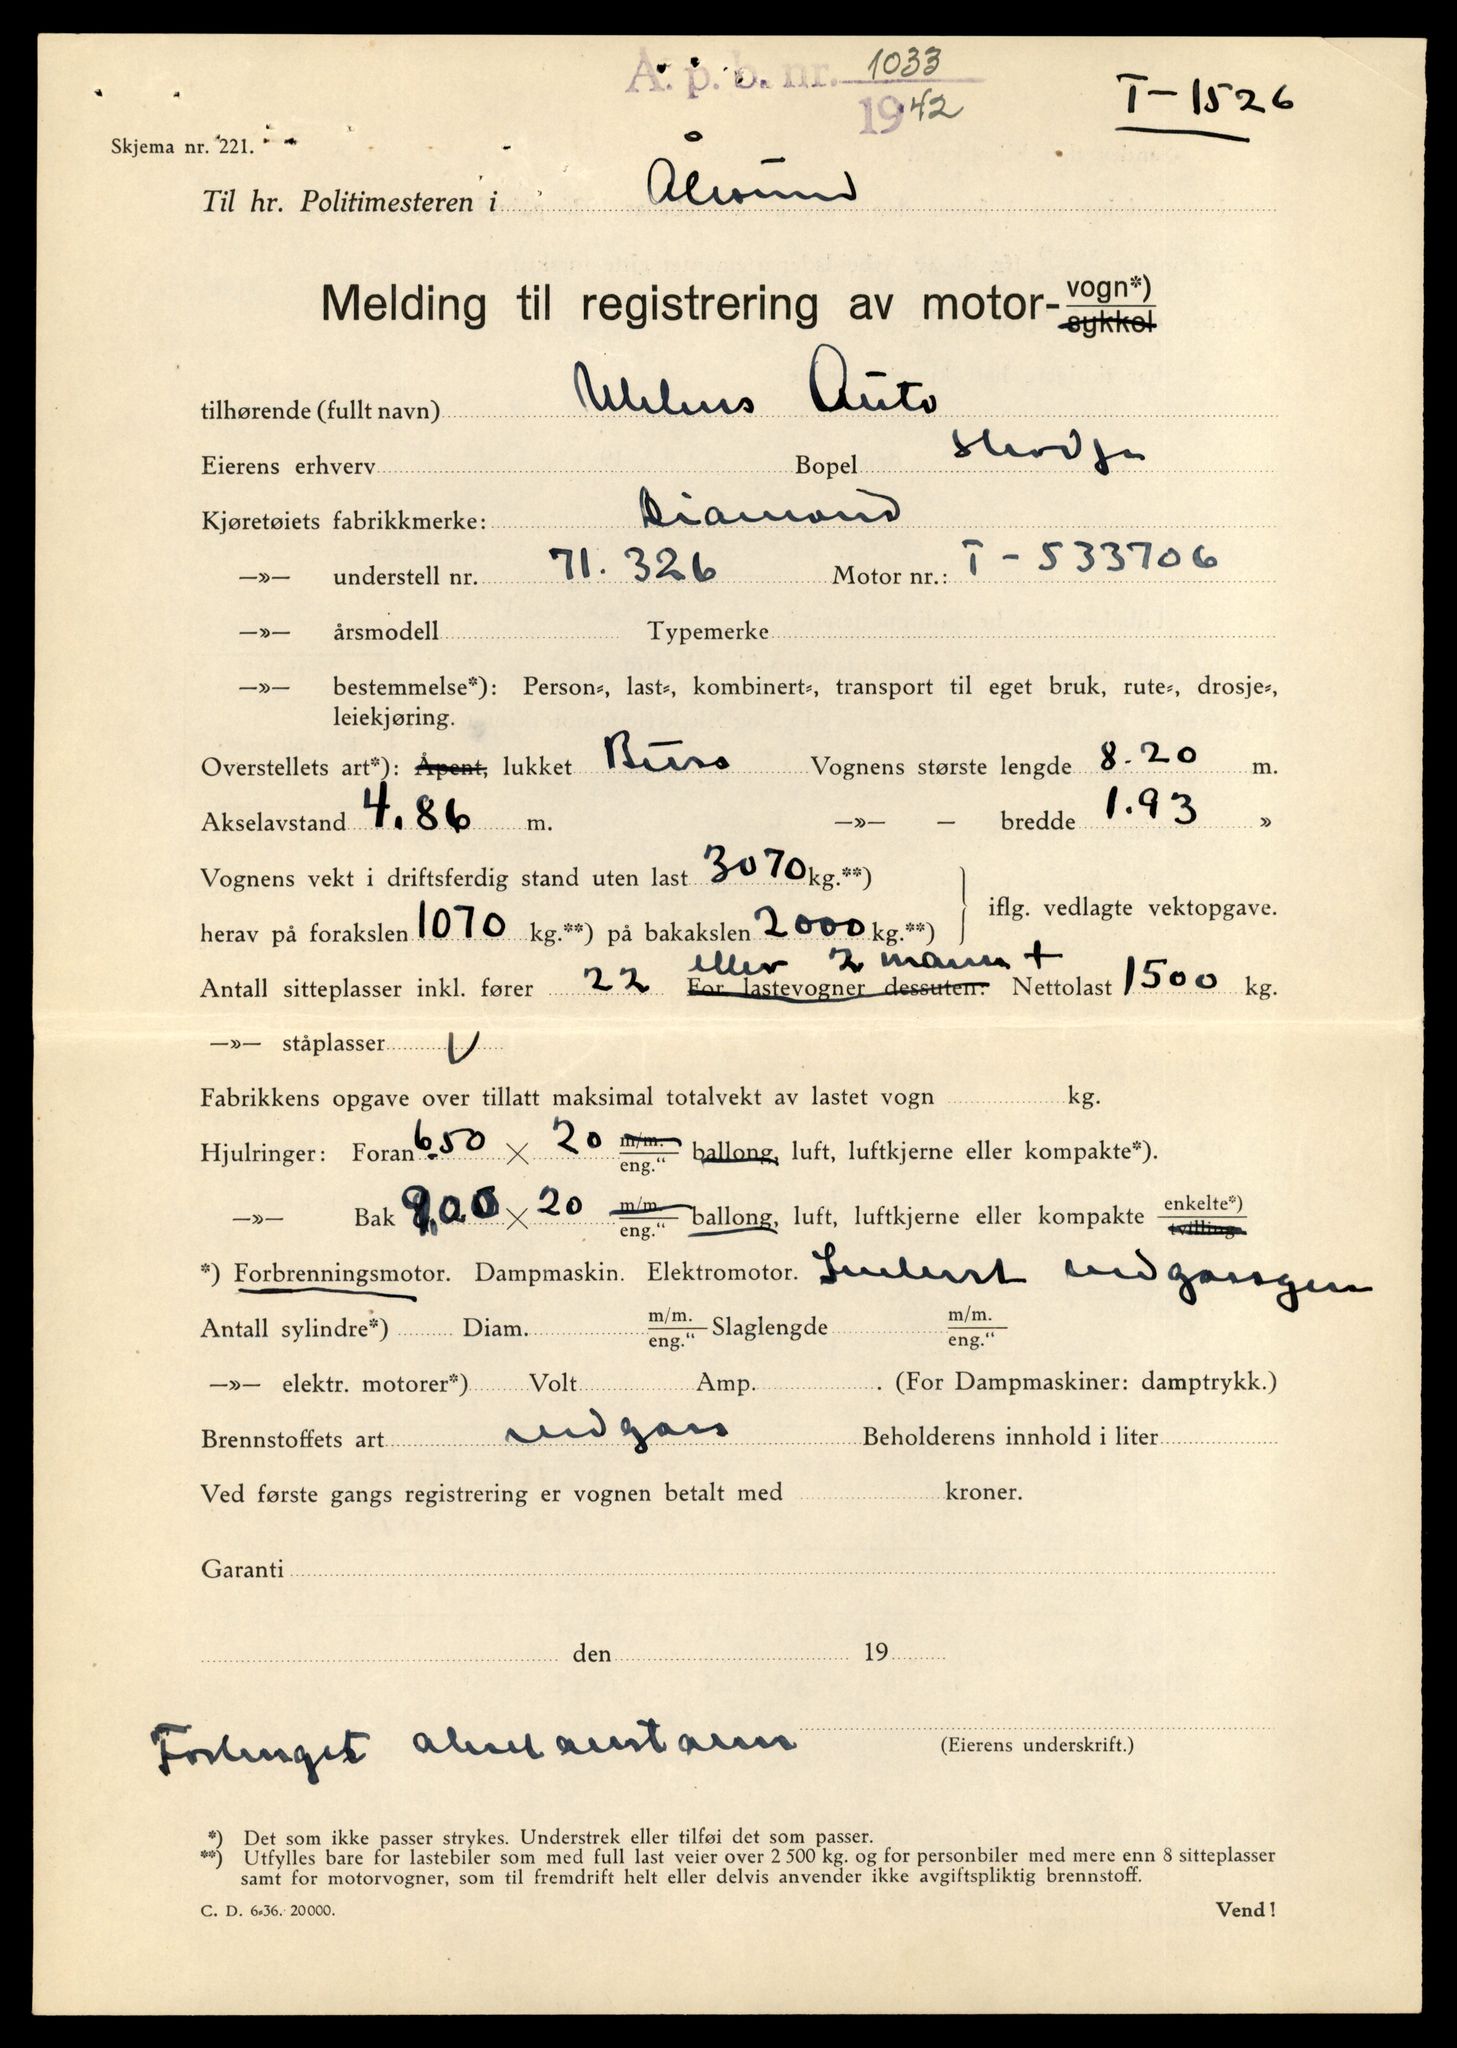 A. p. b. nr. 1033
1942
T-1526
Skjema nr. 221.
Til hr. Politimesteren i Ålesund
Melding til registrering av motor-vogn*)
sykkel
tilhørende (fullt navn) Uhlens Auto
Eierens erhverv Bopel Skodje
Kjøretøiets fabrikkmerke: Diamond
—»— understell nr. 71.326 Motor nr.: T-533706
—»— årsmodell Typemerke
—»— bestemmelse*): Person-, last-, kombinert-, transport til eget bruk, rute-, drosje-,
leiekjøring.
Overstellets art*): Åpent, lukket Buss Vognens største lengde 8.20 m.
Akselavstand 4.86 m. —»— - bredde 1.93 »
Vognens vekt i driftsferdig stand uten last 3070 kg.**)
herav på forakslen 1070 kg.**) på bakakslen 2000 kg.**) iflg. vedlagte vektopgave.
eller 2 mann +
Antall sitteplasser inkl. fører 22 For lastevogner dessuten: Nettolast 1500 kg.
—»— ståplasser
Fabrikkens opgave over tillatt maksimal totalvekt av lastet vogn kg.
Hjulringer: Foran 6.50 × 20 m/m. eng." ballong, luft, luftkjerne eller kompakte*).
—»— Bak 9.00 × 20 m/m eng." ballong, luft, luftkjerne eller kompakte enkelte*) tvilling
*) Forbrenningsmotor. Dampmaskin. Elektromotor. vedgassgen
Antall sylindre*) Diam. m/m. eng." Slaglengde m/m. eng."
—»— elektr. motorer*) Volt Amp. . (For Dampmaskiner: damptrykk.)
Brennstoffets art vedgass Beholderens innhold i liter
Ved første gangs registrering er vognen betalt med kroner.
Garanti
den 19
Forlenget
(Eierens underskrift.)
*) Det som ikke passer strykes. Understrek eller tilføi det som passer.
**) Utfylles bare for lastebiler som med full last veier over 2 500 kg. og for personbiler med mere enn 8 sitteplasser
samt for motorvogner, som til fremdrift helt eller delvis anvender ikke avgiftspliktig brennstoff.
C. D. 6-36. 20000. Vend!